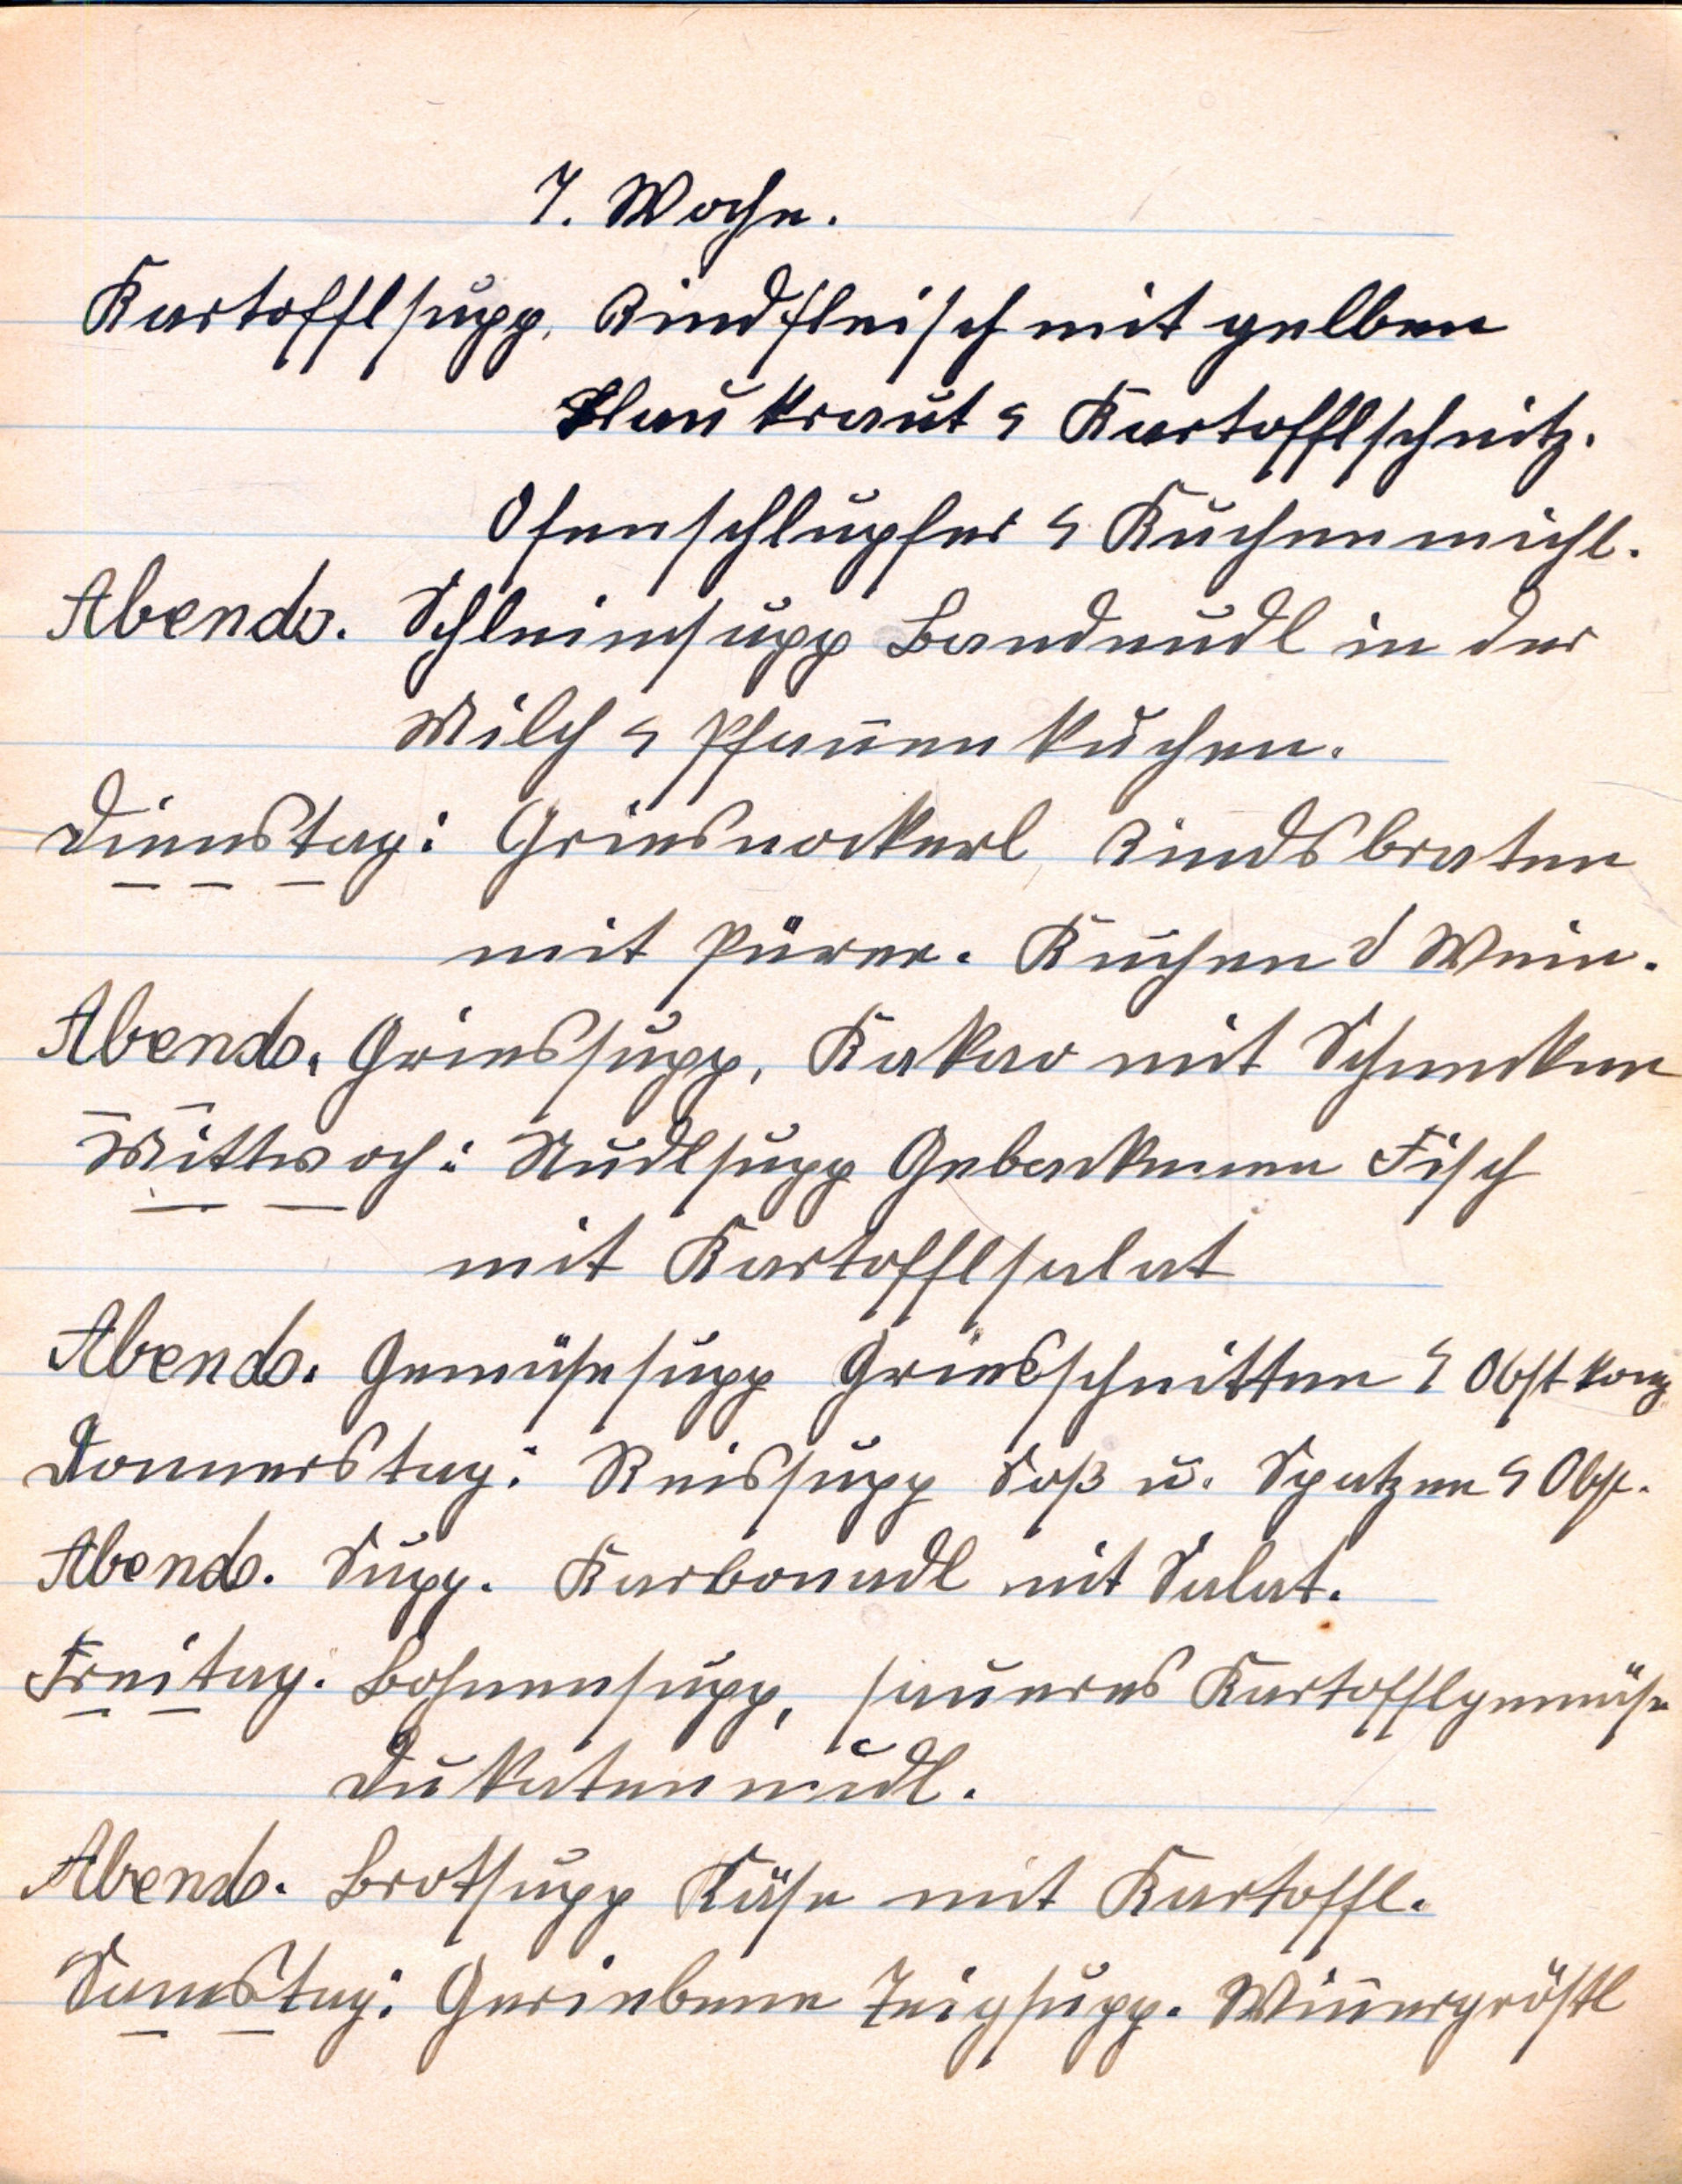 7. Woche.
Kartofflsupp, Rindfleisch mit gelben
Blaukraut & Kartofflschnitz.
Ofenschlupfer & Kuchenmichl.
Abends. Schleimsupp Bandnudl in der
Milch & Pfannenkuchen.
Dienstag: Griesnockerl, Rindsbraten
mit Püree. Kuchen & Wein.
Abends. Griessupp, Kakao mit Schnecken
Mittwoch: Nudlsupp Gebackenen Fisch
mit Kartofflsalat
Abends. Gemüsesupp Griesschnitten & Obstkomp.
Donnerstag: Reissupp Soß u. Spatzen & Obst.
Abends. Supp. Karbonadl mit Salat.
Freitag. Bohnensupp, saueres Kartofflgemüse
Dukatennudl.
Abends. Brotsupp Käse mit Kartoffl.
Samstag: Geriebene Teigsupp. Wienergröstl